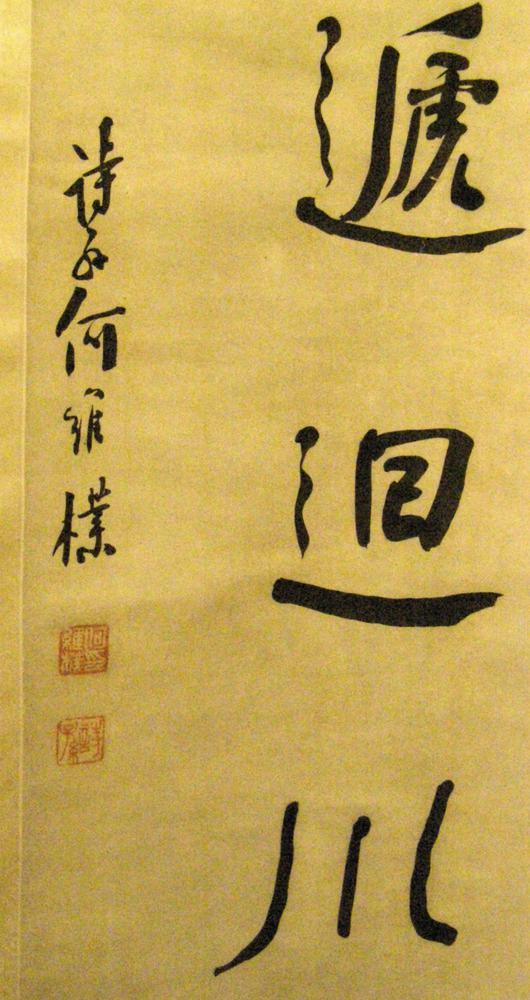 遞迴川
詩孫何維樸